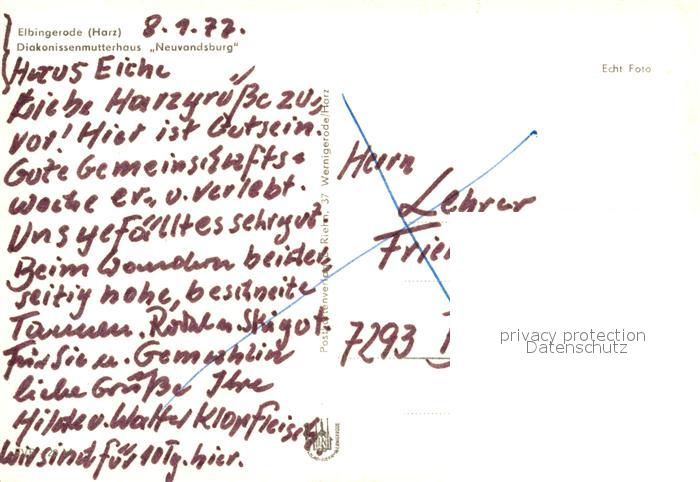 Elbingerode (Harz) 8.1.77.
Diakonissenmutterhaus „Neuvandsburg“
Haus Eiche
Liebe Harzgrüße zu-
vor! Hier ist Gutsein.
Gute Gemeinschafts-
woche er-, u. verlebt.
Uns gefällt es sehr gut.
Beim Wandern beider-
seitig hohe, beschneite
Tannen. Rodeln Ski gut.
Für Sie u. Gemahlin
liebe Grüße Ihre
Hilde u. Walter Klopfleisch.
Wir sind für 10 Tg. hier.
Echt Foto
Riehn, 37 Wernigerode/Harz
Herrn
Lehrer
Frie
7293
privacy protection
Datenschutz